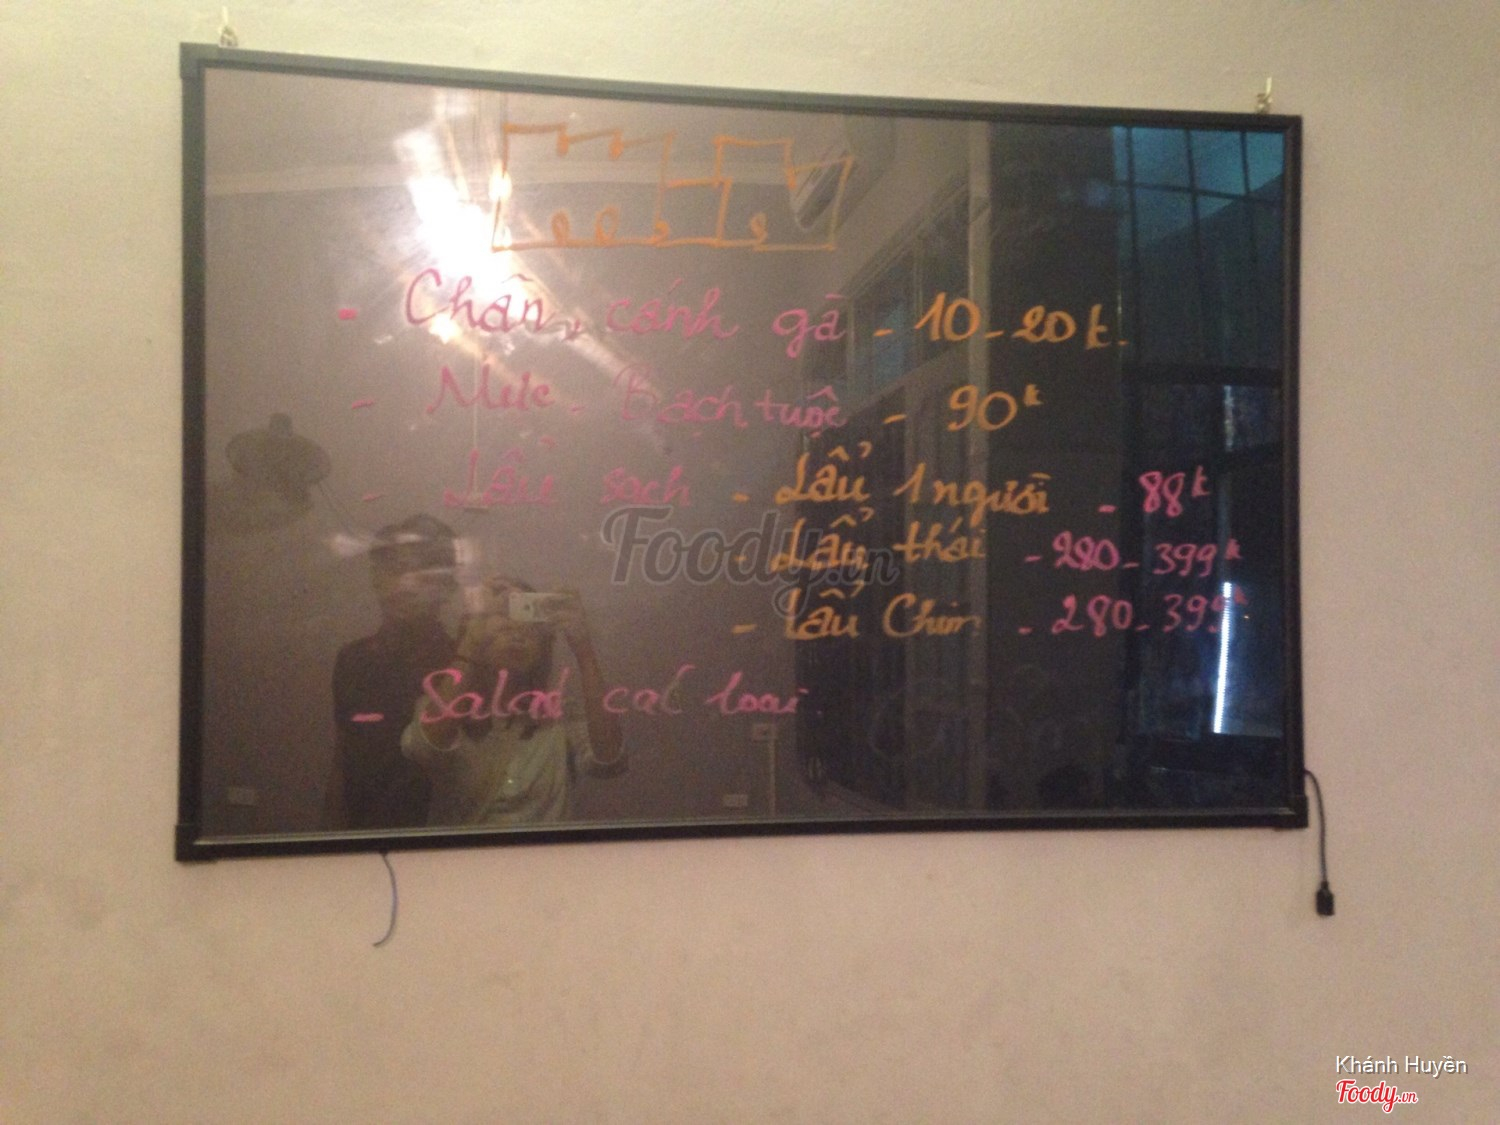 MENU
- Chân, cánh gà - 10 - 20k.
- Mực - Bạch tuộc - 90k
- Lẩu sạch - Lẩu 1 người - 88k
- Lẩu thái - 280 - 399k
- Lẩu Chim - 280 - 399k
- Salad các loại.
Foody.vn
Khánh Huyền
Foody.vn